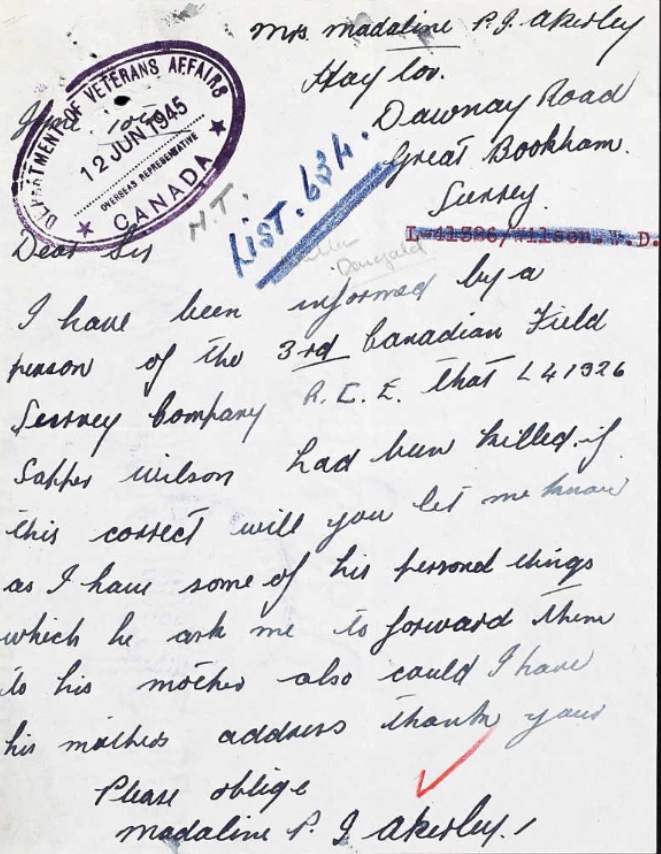 Mrs. Madaline P. J. Akerley
Hay Cov.
Dawnay Road
Great Bookham.
Surrey.
DEPARTMENT OF VETERANS AFFAIRS
12 JUN 1945
OVERSEAS REPRESENTATIVE
CANADA
June 10th
N.T.
LIST. 634.
Dougald
L-41326/Wilson.W.D.
Dear Sir
I have been informed by a
person of the 3rd Canadian Field
Survey Company R.C.E. that L41326
Sapper Wilson had been killed. if
this correct will you let me know
as I have some of his personal things
which he ask me to forward them
to his mother also could I have
his mothers address thank your
Please oblige
Madaline P. J Akerley.